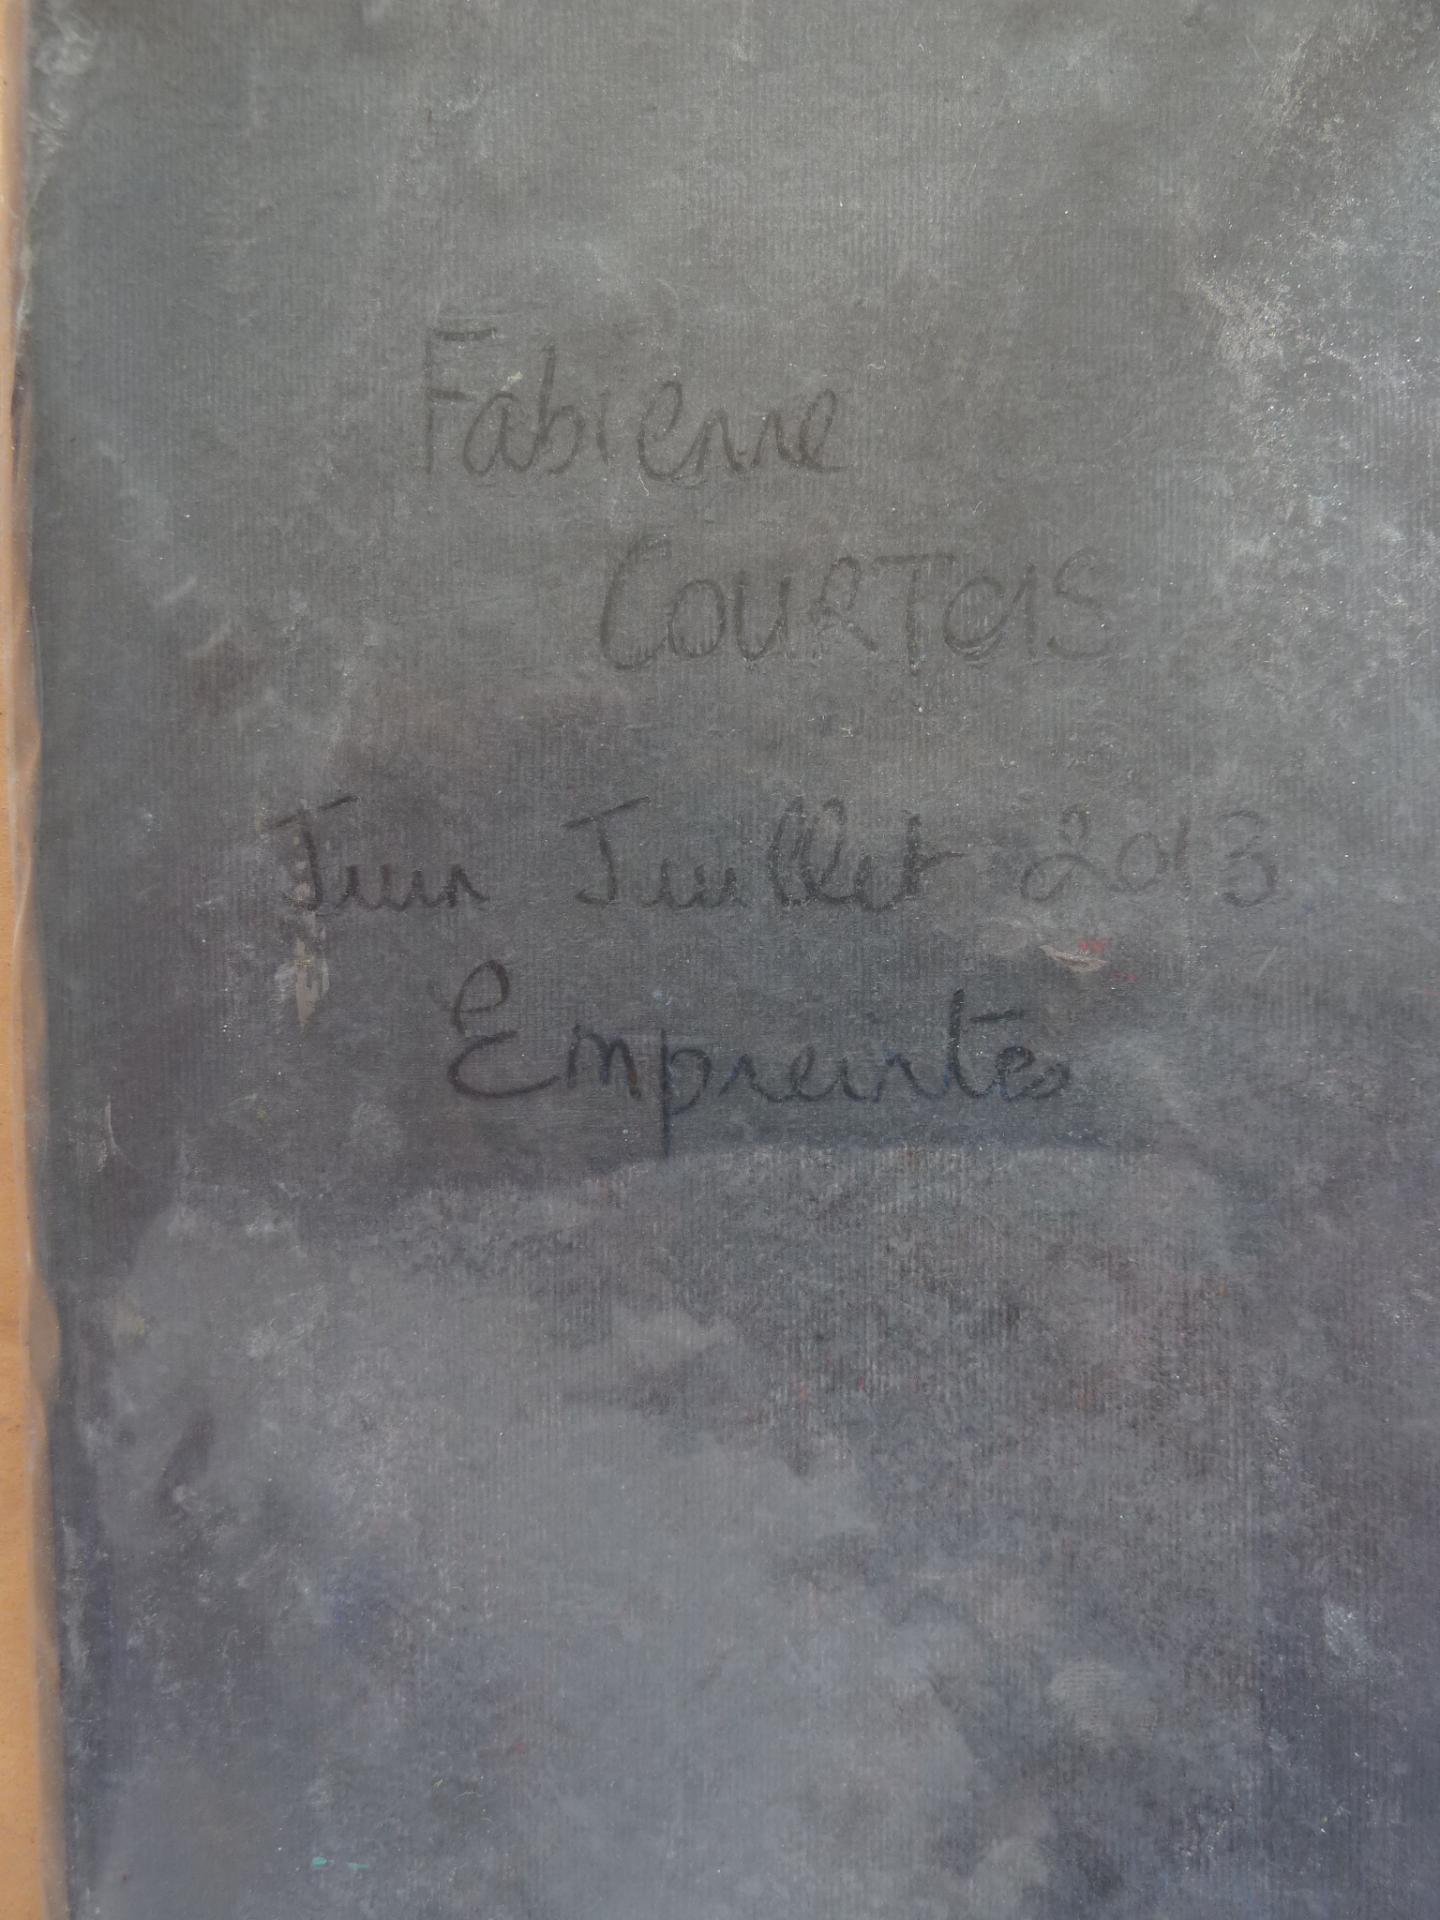 Fabienne
COURTOIS
Juin Juillet 2013
Empreinte